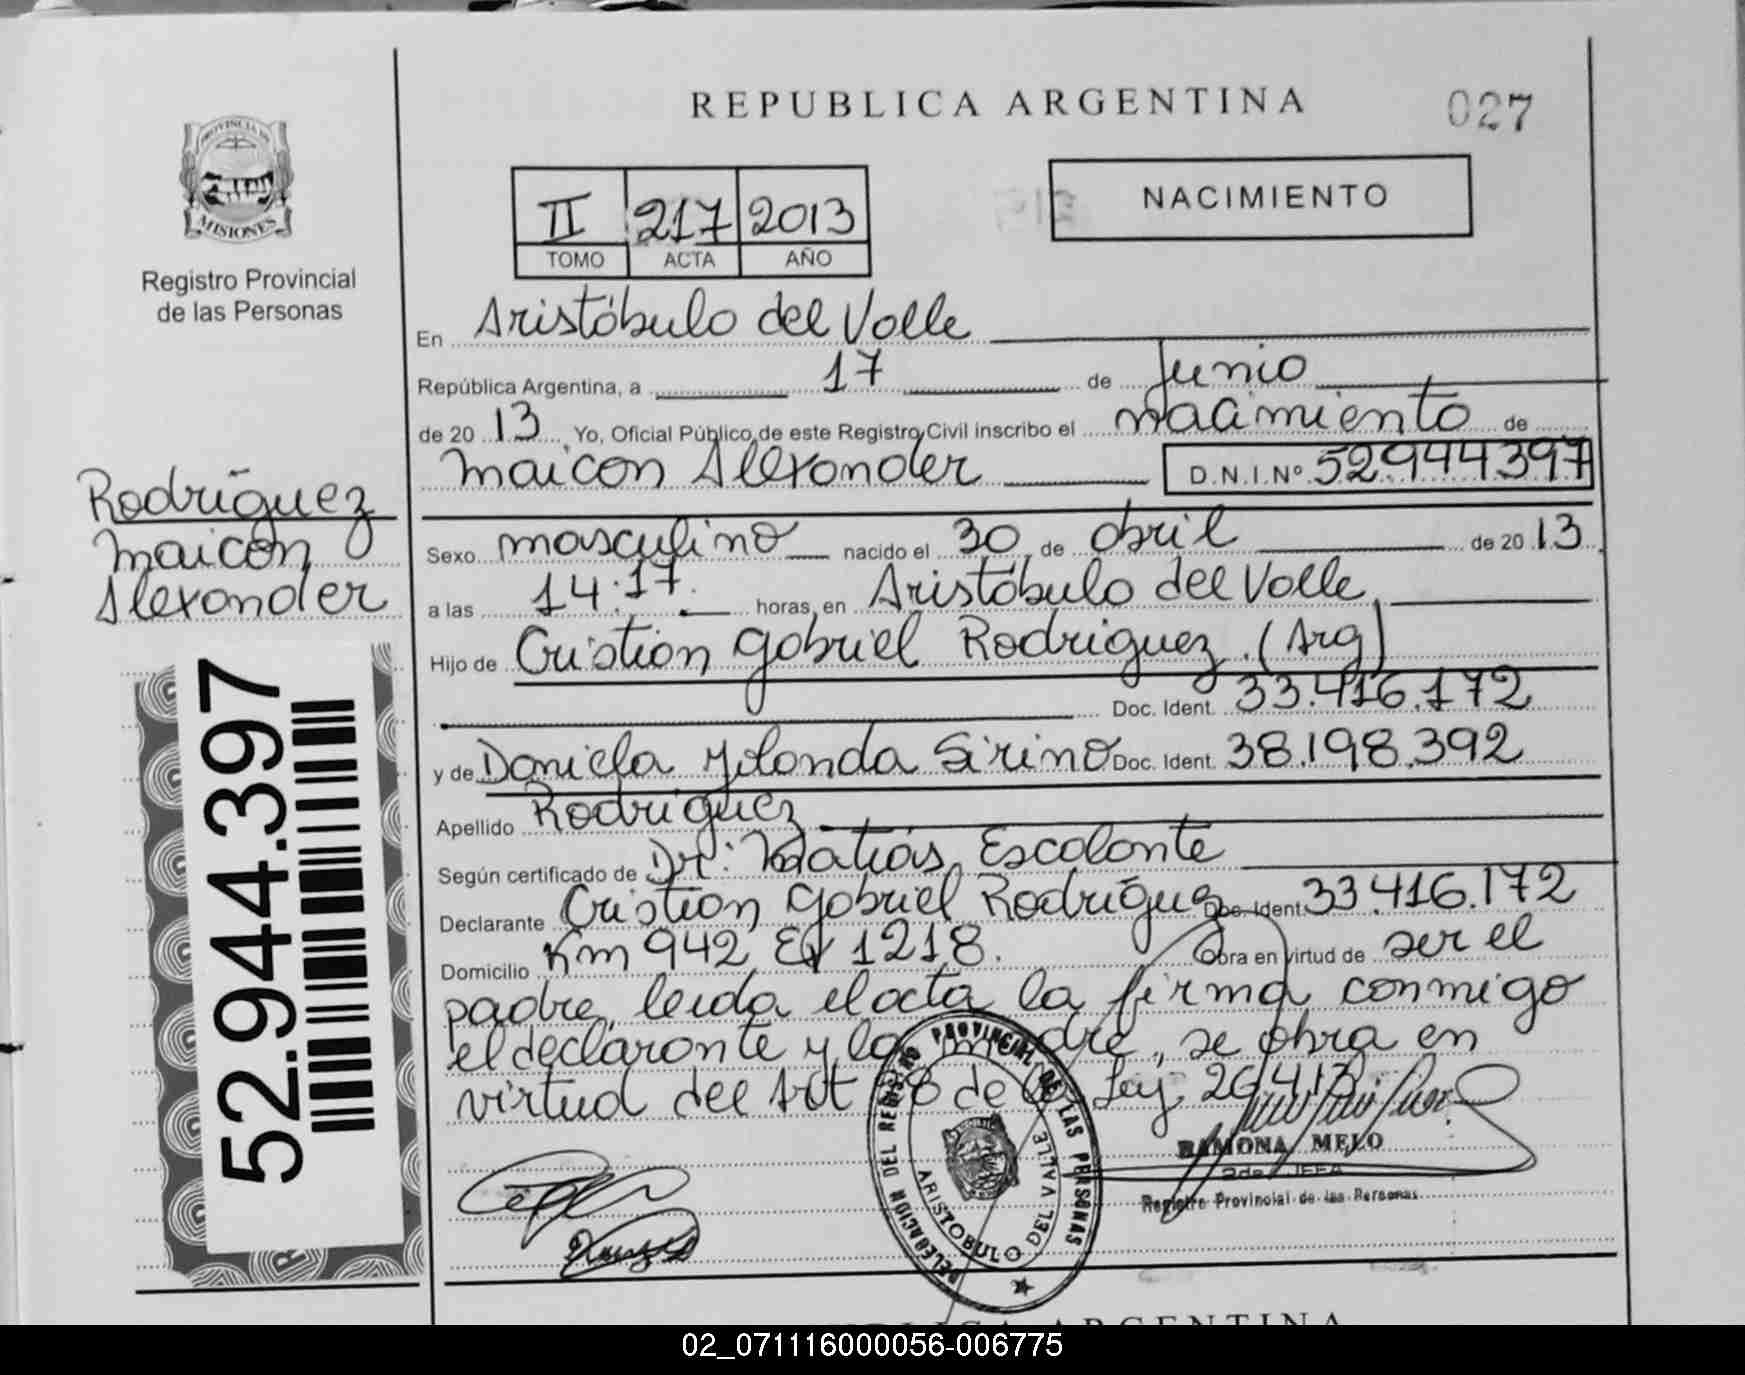 REPUBLICA ARGENTINA
027
PROVINCIA DE
MISIONES
Registro Provincial
de las Personas
II 217 2013
TOMO ACTA AÑO
NACIMIENTO
En Aristóbulo del Valle
República Argentina, a 17 de Junio
de 2013 Yo, Oficial Público de este Registro Civil inscribo el nacimiento de
Maicon Alexander D.N.I.Nº 52.944.397
Rodríguez
Maicon
Alexander
Sexo masculino nacido el 30 de abril de 2013
a las 14:17. horas, en Aristóbulo del Valle
Hijo de Cristian Gabriel Rodriguez. (Arg)
Doc. Ident. 33.416.172
y de Daniela Yolanda Sirino Doc. Ident. 38.198.392
Apellido Rodríguez
Según certificado de Dr. Matías Escalante
Declarante Cristian Gabriel Rodríguez Doc. Ident. 33.416.172
Domicilio Km 942 1218. Obra en virtud de ser el
padre, leída el acta la firma conmigo
el declarante y la madre, se obra en
virtud del Art 28 de la Ley 26.413
52.944.397
DELEGACION DEL REGISTRO PROVINCIAL DE LAS PERSONAS
ARISTOBULO DEL VALLE
RAMONA MELO
2da JEFA
Registro Provincial de las Personas
ARGENTINA
02_071116000056-006775